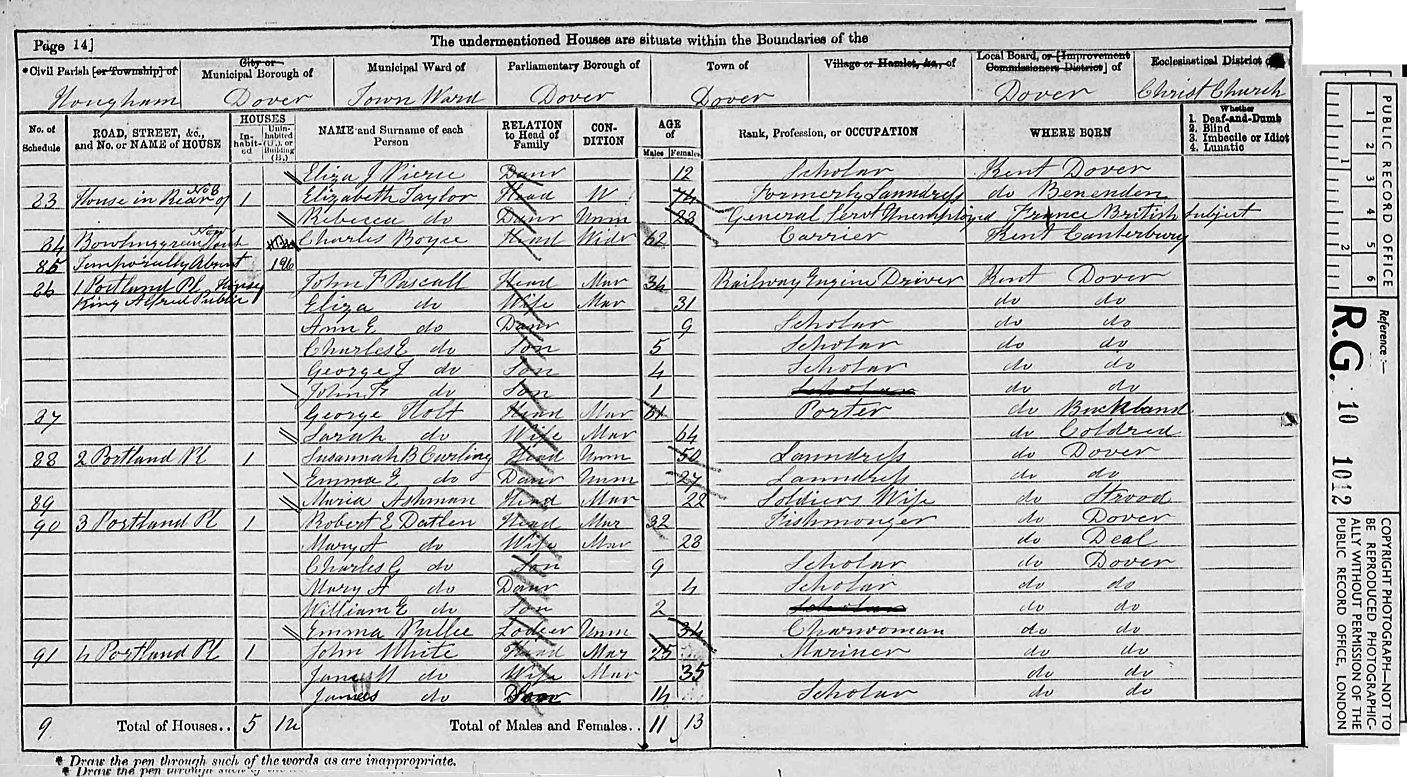 Page 14]
The undermentioned Houses are situate within the Boundaries of the
*Civil Parish [or Township] of
City or Municipal Borough of
Municipal Ward of
Parliamentary Borough of
Town of
Village or Hamlet, &c., of
Local Board, or [Improvement Commissioners District] of
Ecclesiastical District of
Hougham Dover Town Ward Dover Dover Dover Christ Church
No. of Schedule
ROAD, STREET, &c., and No. or NAME of HOUSE
HOUSES
Inhabited
Uninhabited (U.), or Building (B.)
NAME and Surname of each Person
RELATION to Head of Family
CONDITION
AGE of
Males Females
Rank, Profession, or OCCUPATION
WHERE BORN
Whether
1. Deaf-and-Dumb
2. Blind
3. Imbecile or Idiot
4. Lunatic
Eliza J Pierce Daur 12 Scholar Kent Dover
83 House in Rear of No 8 1 Elizabeth Taylor Head W 74 Formerly Laundress do Benenden
Rebecca do Daur Unm 23 General Servt Unemployed France British Subject
84 Bowlinggreen Charles Boyce Head Widr 62 Carrier Kent Canterbury
85 Temporally Absent
86 1 Portland Pl John F Pascall Head Mar 34 Railway Engine Driver Kent Dover
King Alfred Public House Eliza do Wife Mar 31 do do
Ann E do Daur 9 Scholar do do
Charles E do Son 5 Scholar do do
George J do Son 4 Scholar do do
John F do Son 1 Scholar do do
87 George Holt Head Mar 61 Porter do Buckland
Sarah do Wife Mar 64 do Coldred
88 2 Portland Pl 1 Susannah B Curling Head Unm 50 Laundress do Dover
Emma E do Daur Unm 27 Laundress do do
89 Maria Ashman Head Mar 22 Soldiers Wife do Strood
90 3 Portland Pl 1 Robert E Datlen Head Mar 32 Fishmonger do Dover
Mary A do Wife Mar 28 do Deal
Charles G do Son 9 Scholar do Dover
Mary A do Daur 4 Scholar do do
William E do Son 2 Scholar do do
Emma Pullee Lodger Unm 34 Charwoman do do
91 4 Portland Pl 1 John White Head Mar 25 Mariner do do
Jane do Wife Mar 35 do do
James do Son 14 Scholar do do
9 Total of Houses.. 5 Total of Males and Females.. 11 13
* Draw the pen through such of the words as are inappropriate.
PUBLIC RECORD OFFICE
1 2 3 4 5 6
1 2
Reference:-
R.G. 10 1012
COPYRIGHT PHOTOGRAPH—NOT TO BE REPRODUCED PHOTOGRAPHICALLY WITHOUT PERMISSION OF THE PUBLIC RECORD OFFICE, LONDON